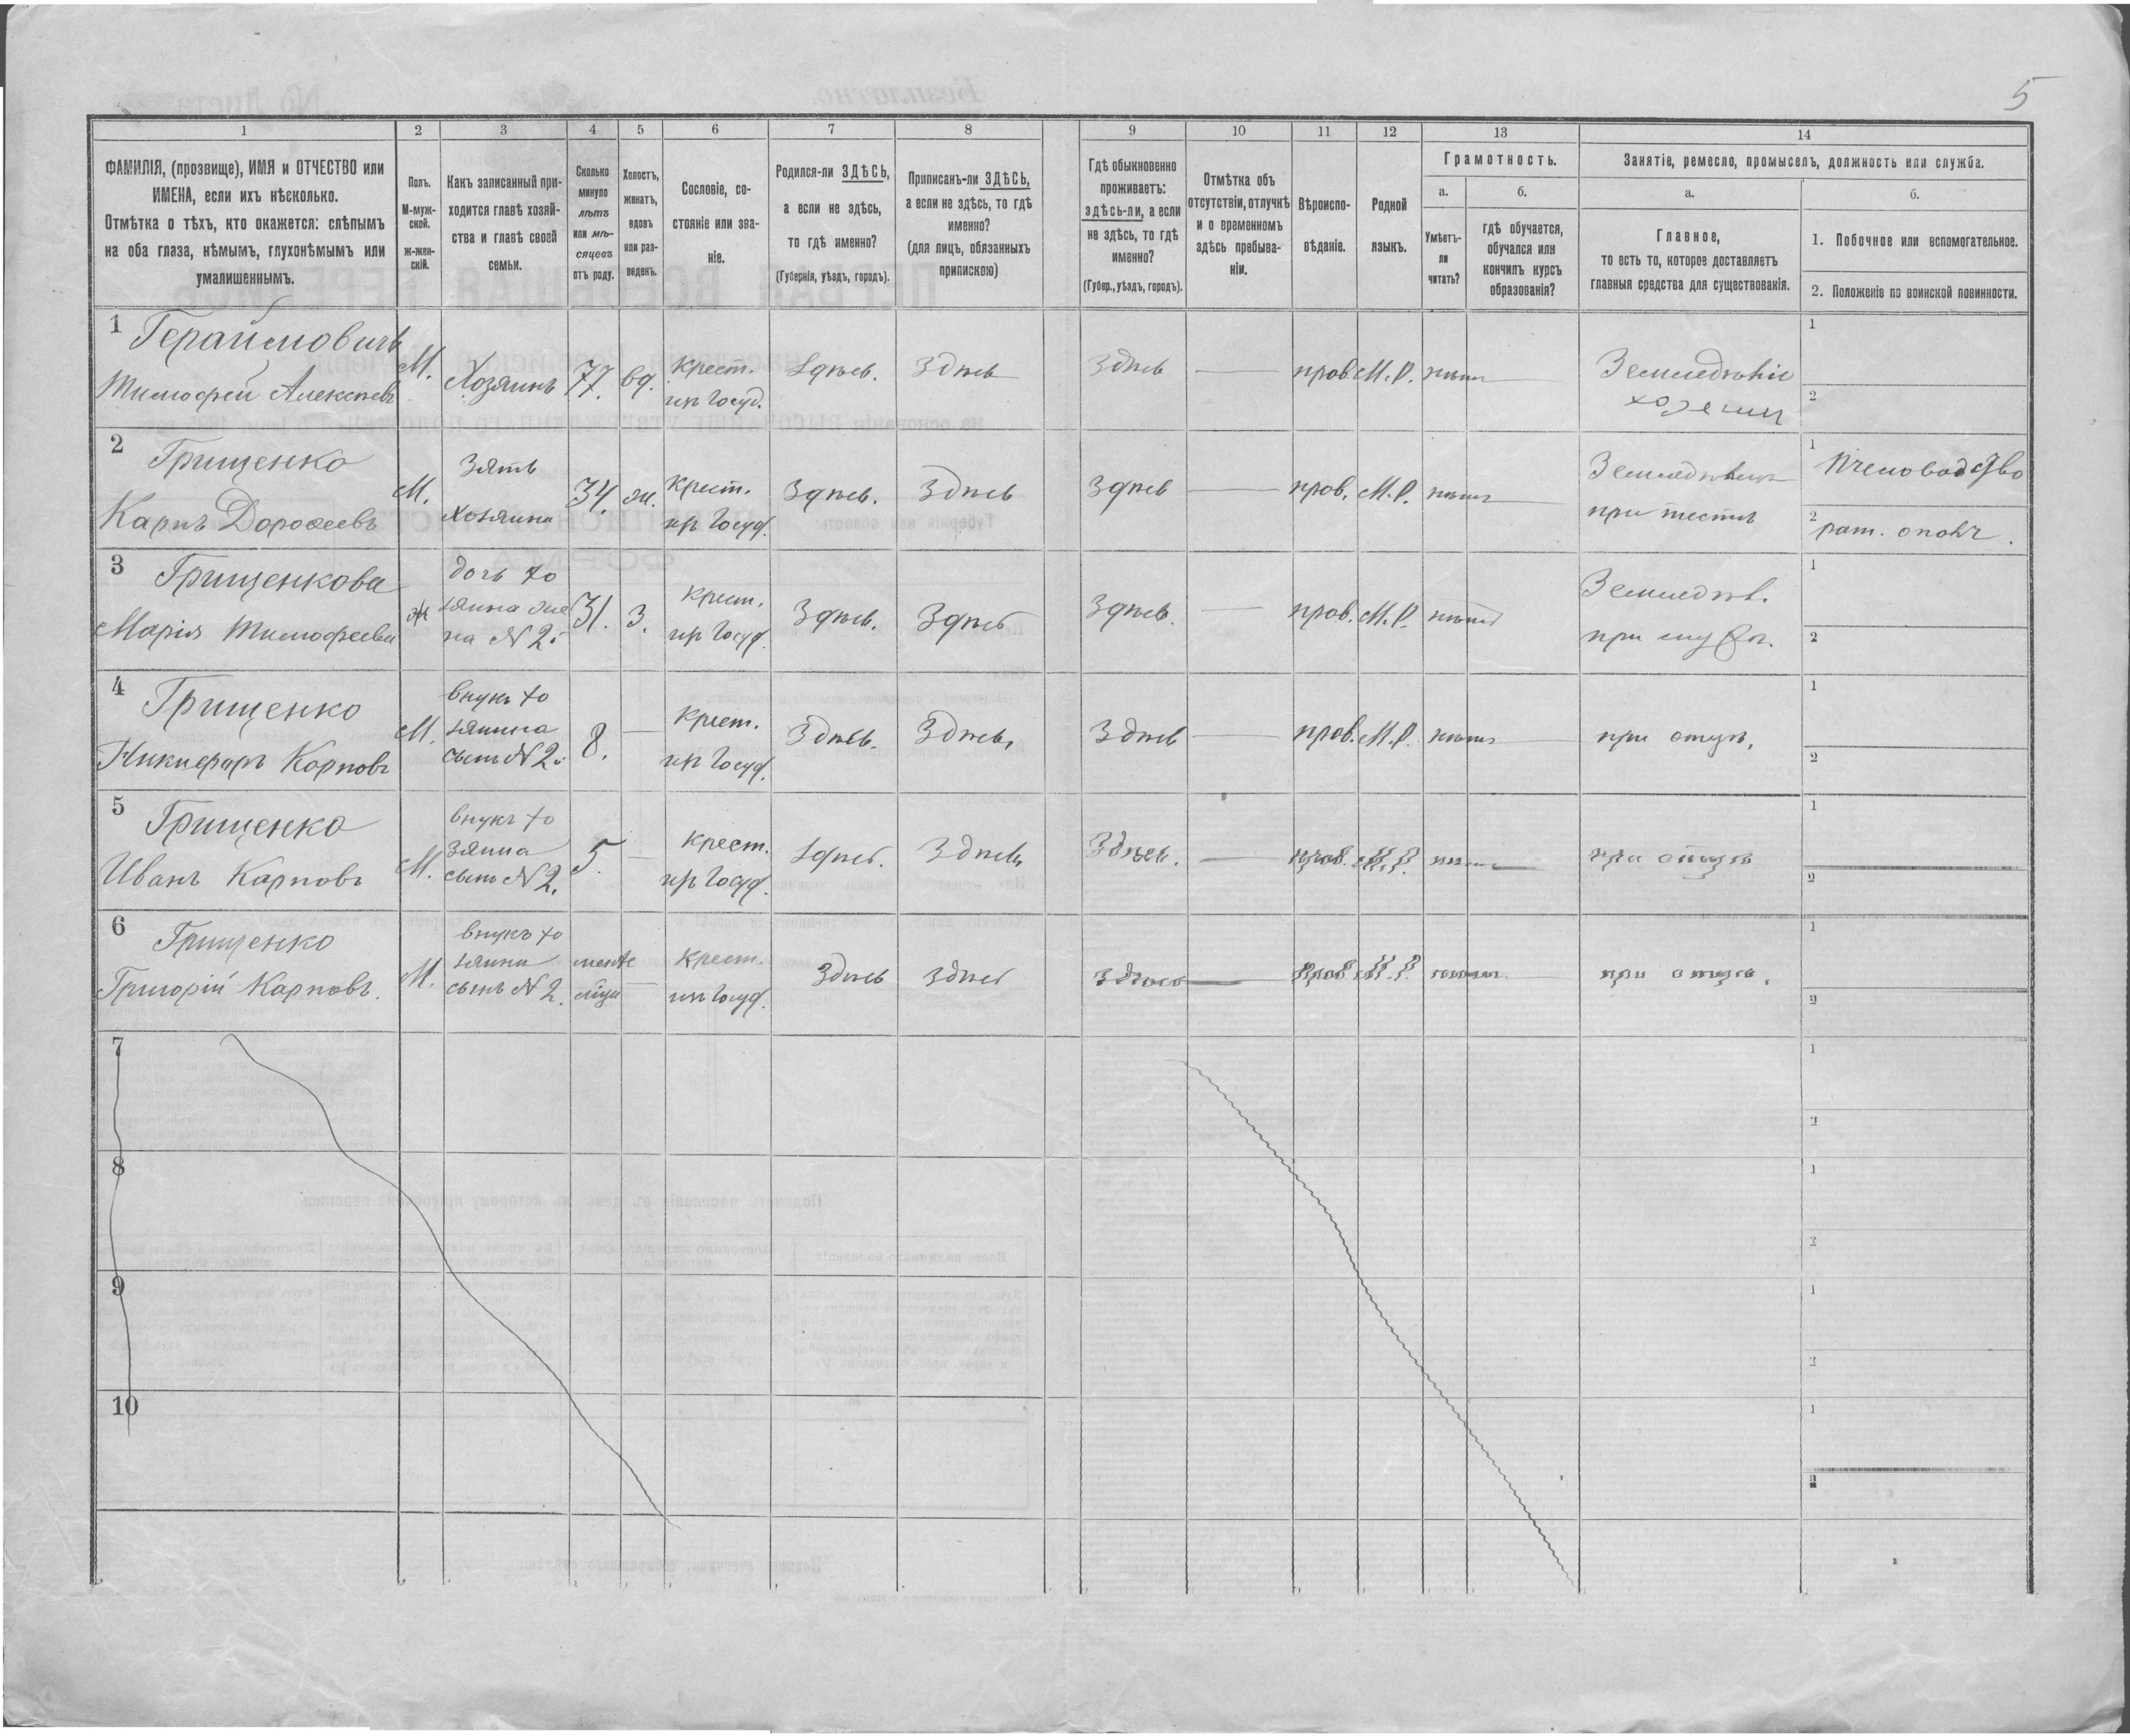 5
1
2
3
4
5
6
7
8
9
10
11
12
13
14
ФАМИЛІЯ, (прозвище), ИМЯ и ОТЧЕСТВО или
ИМЕНА, если ихъ нѣсколько.
Отмѣтка о тѣхъ, кто окажется: слѣпымъ
на оба глаза, нѣмымъ, глухонѣмымъ или
умалишеннымъ.
Полъ.
М-муж-
ской.
ж-жен-
скій.
Какъ записанный при-
ходится главѣ хозяй-
ства и главѣ своей
семьи.
Сколько
минуло
лѣтъ
или мѣ-
сяцевъ
отъ роду.
Холостъ,
женатъ,
вдовъ
или раз-
веденъ.
Сословіе, со-
стояніе или зва-
ніе.
Родился-ли ЗДѢСЬ,
а если не здѣсь,
то гдѣ именно?
(Губернія, уѣздъ, городъ).
Приписанъ-ли ЗДѢСЬ,
а если не здѣсь, то гдѣ
именно?
(для лицъ, обязанныхъ
припискою)
Гдѣ обыкновенно
проживаетъ:
здѣсь-ли, а если
не здѣсь, то гдѣ
именно?
(Губер., уѣздъ, городъ).
Отмѣтка объ
отсутствіи, отлучкѣ
и о временномъ
здѣсь пребыва-
ніи.
Вѣроиспо-
вѣданіе.
Родной
языкъ.
Грамотность.
а.
Умѣетъ-
ли
читать?
б.
гдѣ обучается,
обучался или
кончилъ курсъ
образованія?
Занятіе, ремесло, промыселъ, должность или служба.
а.
Главное,
то есть то, которое доставляетъ
главныя средства для существованія.
б.
1. Побочное или вспомогательное.
2. Положеніе по воинской повинности.
1
Тимофей Алексѣевъ
М.
Хозяинъ
77.
вд.
Крест.
ир Госуд.
Здѣсь.
Здѣсь
Здѣсь
прав.
М.Р.
нѣтъ
Земледѣліе
хозяинъ
1
2
2
Грищенко
Карпъ Дороѳеевъ
М.
Зять
хозяина
34.
ж.
Крест.
ир Госуд.
Здѣсь.
Здѣсь
Здѣсь
прав.
М.Р.
нѣтъ
при тестѣ
1 пчеловодство
2 рат. ополч.
3
Грищенкова
Марія Тимофеева
ж
дочь хо
зяина же
на № 2й
31.
З.
Крест.
ир Госуд.
Здѣсь.
Здѣсь
Здѣсь.
прав.
М.Р.
нѣтъ
Земледѣл.
при мужѣ.
1
2
4
Грищенко
Никифоръ Карповъ
М.
внукъ хо
зяина
сынъ № 2й
8.
Крест.
ир Госуд.
Здѣсь.
Здѣсь,
Здѣсь
прав.
М.Р.
нѣтъ
при отцѣ,
1
2
5
Грищенко
Иванъ Карповъ
М.
внукъ хо
зяина
сынъ № 2.
5.
Крест.
ир Госуд.
Здѣсь.
Здѣсь
Здѣсь.
прав.
М.Р.
нѣтъ
при отцѣ
1
2
6
Грищенко
Григорій Карповъ.
М.
внукъ хо
зяина
сынъ № 2.
Крест.
ир Госуд.
Здѣсь
Здѣсь
Здѣсь
прав
М.Р.
нѣтъ
при отцѣ.
1
2
7
1
2
8
1
2
9
1
2
10
1
2